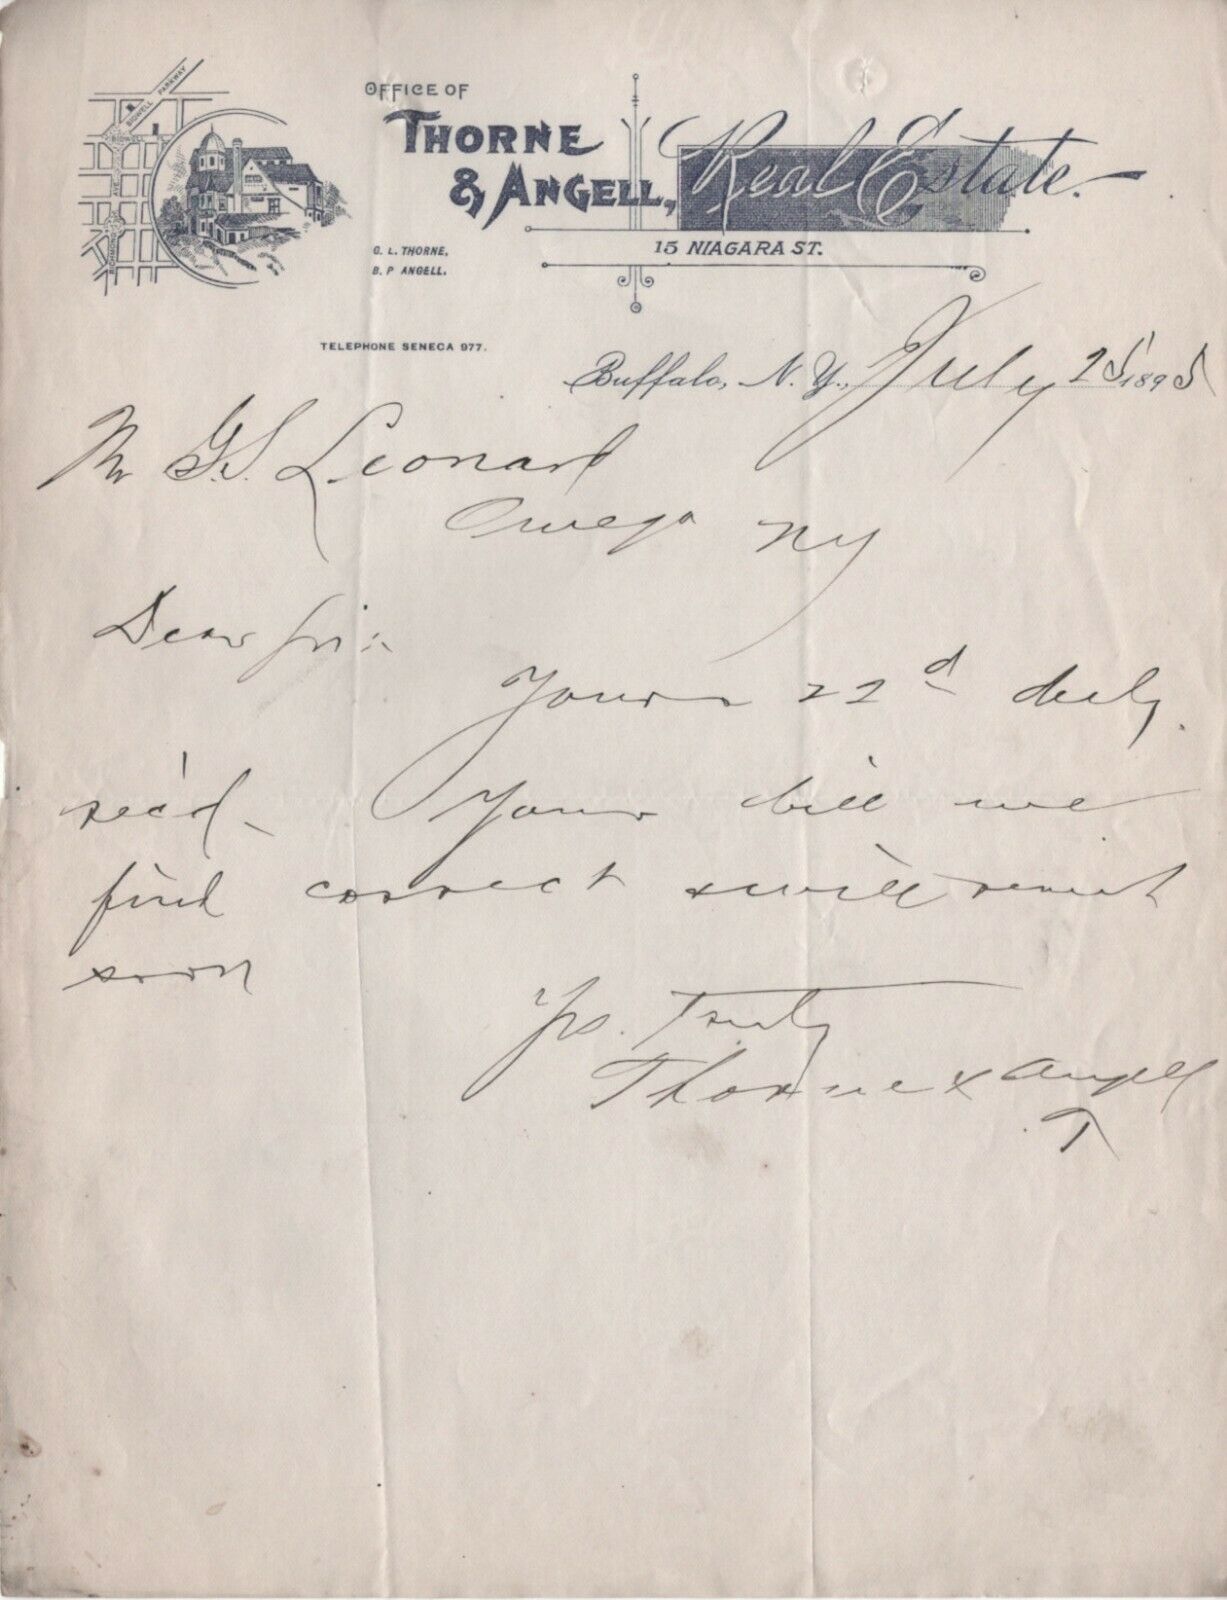 OFFICE OF
THORNE
& ANGELL, Real Estate.
15 NIAGARA ST.
G. L. THORNE,
B. P. ANGELL.
TELEPHONE SENECA 977.
BIDWELL PARKWAY
AVE.
Buffalo, N. Y., July 25 1895
Mr G.S. Leonard
Owego NY
Dear Sir:
Yours 22d duly
rec'd - Your bill we
find correct & will remit
soon
Yrs. Truly
Thorne & Angell
T